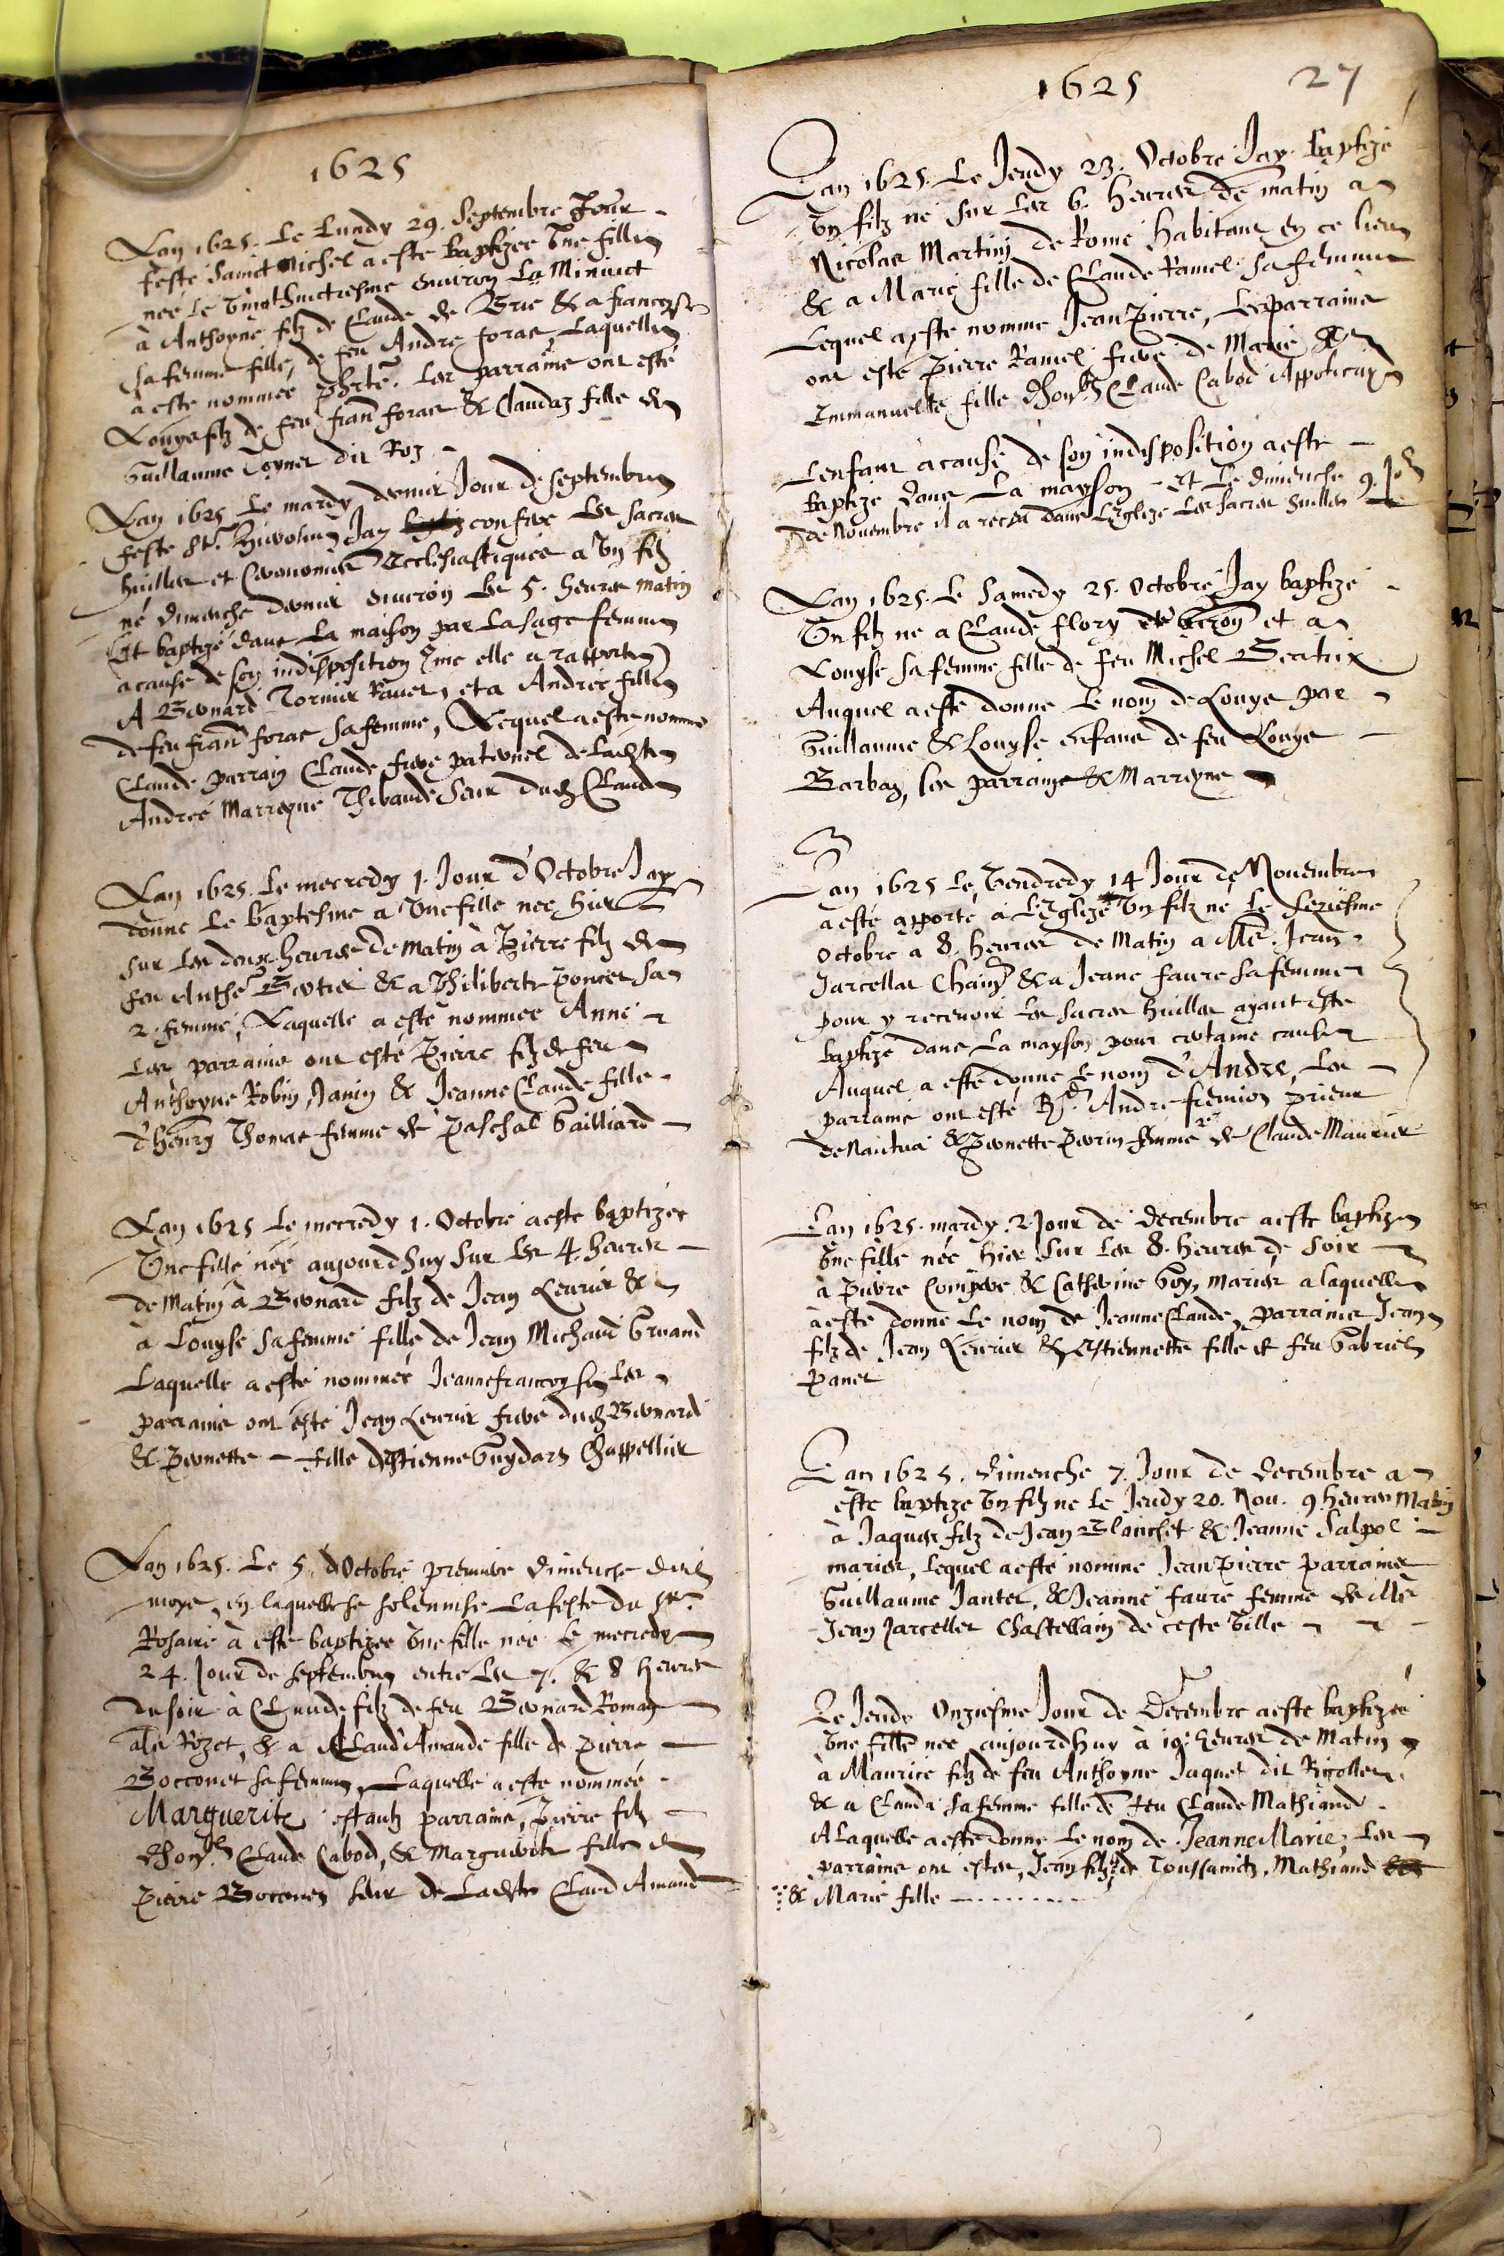 1625
Lan 1625. Le Lundy 29. Septembre Jour
feste sainct Michel a este baptizee Une fille
née Le Vingthuictiesme environ La Minuict
à Anthoyne filz de Claude de Brie & a francoyse
sa femme fille, de feu Andre foras, Laquelle
a este nommée Phrte. Les parrains ont esté
Louys filz de feu fran foras & Claudaz fille de
Guillaume Joynet dit Roz
Lan 1625 Le mardy dernier Jour de Septembre
feste St. Hierosme Jay confere Les sacres
huilles et Ceremonies Ecclesiastiques a Un filz
né dimenche dernier environ Les 5. heures matin
Et baptizé dans La maison par La sage femme
a cause de son indisposition cme elle a rapporté
A Bernard Tornier Ravet, et a Andree fille
de feu fran foras sa femme, Lequel a este nomme
Claude parrain Claude frere paternel de Ladite
Andree Marreyne Thibaude Seur dud Claude
Lan 1625. Le mecredy 1. Jour d'Octobre Jay
donné Le baptesme a Une fille nee hier
sur Les deux heures de matin à Pierre filz de
feu Anthe Bertier & a Philiberte Poncet sa
2. femme, Laquelle a esté nommée Anne
Les parrains ont esté Pierre filz de feu
Anthoyne Robin, Janin & Jeanne Claude fille
d'henry Thomas femme de Paschal Gailliard
Lan 1625 Le mecredy 1. Octobre a este baptizée
Une fille née aujourdhuy sur Les 4. heures
de Matin à Bernard filz de Jean Levrier &
à Louyse sa femme fille de Jean Michaud Gruand
Laquelle a esté nommée Jeannefrancoyse Les
parrains ont este Jean Levrier frere dud Bernard
& Pernette fille d'Estienne Guydars Chappellier
Lan 1625. Le 5. d'Octobre premiere dimenche dud
moys, en laquelle se solennise La feste du St.
Rosaire à este baptizee Une fille nee Le mecredy
24. Jour de Septembre entre Les 7. & 8 heures
du soir à Claude filz de feu Bernard Romag
ala Rozet, & a Claud'Amande fille de Pierre
Bocconet sa femme, Laquelle a este nommée
Marguerite estantz parrains, Pierre filz
dhonble Claude Cabod, & Marguerite fille de
Pierre Boconet seur de Ladite Claud'Amande
1625 27
Lan 1625. Le Jeudy 23. Octobre Jay baptizé
Un filz né sur Les 6. heures de matin a
Nicolas Martin de Rome habitant en ce lieu
& a Marie fille de Claude Ramel sa femme
Lequel a este nomme Jean Pierre, Les parrains
ont esté Pierre Ramel frere de Marie &
Emmanuelle fille dhonble Claude Cabod Appoticayre
Lenfant à cause de son indisposition a este
baptize dans La mayson et Le dimenche 9. Jour
de Novembre il a receu dans LEglize Les sacres huilles
Lan 1625. Le Samedy 25. Octobre Jay baptizé
Un filz ne a Claude flory et a
Louyse sa femme fille de feu Michel Beatrix
Auquel a este donne Le nom de Louys par
Guillaume & Louyse enfans de feu Louys
Barbaz, les parrains & Marreyne
Lan 1625 Le Vendredy 14 Jour de Novembre
a esté apporté à LEglize Un filz né Le seziesme
Octobre à 8. heures de Matin a Me. Jean
Jarcellat Chain & a Jeane faure sa femme
pour y recevoir Les sacres huilles ayant este
baptizé dans La mayson pour certaine cause
Auquel a este donne Le nom d'André, Les
parrains ont esté Rd. Andre fremion prieur
de Nantua & Pernette Perrin femme de Claude Maurier
Lan 1625. mardy. 2 Jour de decembre a este baptize
Une fille née hier sur Les 8. heures de soir
à Pierre Compere & Catherine Goy, mariés a laquelle
a este donne Le nom de JeanneClaude, parrains Jean
filz de Jean Levrier & Estiennette fille de feu Gabriel
Panet
Lan 1625. dimenche 7. Jour de decembre a
este baptize Un filz ne Le Jeudy 20. Nov. 9 heures Matin
à Jaques filz de Jean Blanchet & Jeanne Salpol
mariés, Lequel a este nomme Jean Pierre parrains
Guillaume Jantet, & Jeanne faure femme de Me
Jean Jarcellet Chastellain de ceste Ville
Le Jeudy Onziesme Jour de Decembre a este baptizée
Une fille nee aujourdhuy à 10. heures de Matin
à Maurice filz de feu Anthoyne Jaquet dit Ricollet
& a Clauda sa femme fille de feu Claude Mathiand
A Laquelle a este donne Le nom de JeanneMarie, Les
parrains ont estes, Jean filz de Toussainctz Mathiand
& Marie fille